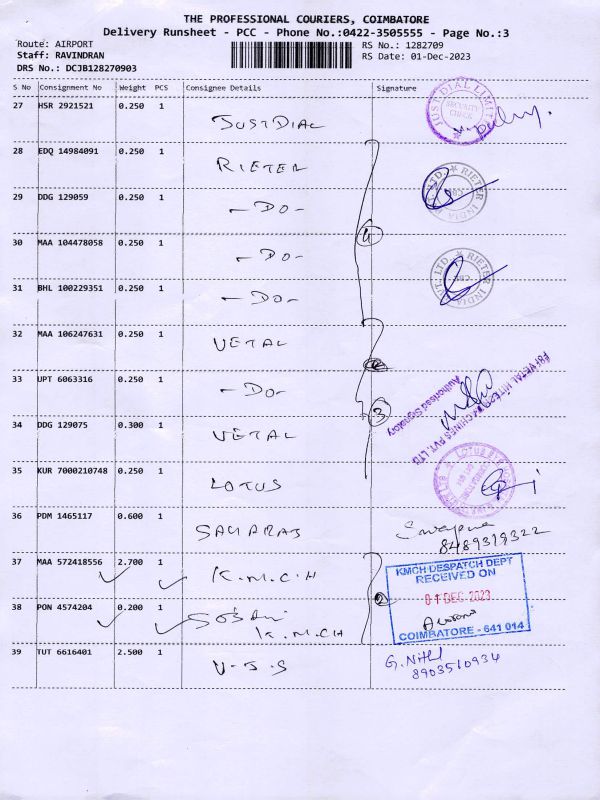 THE PROFESSIONAL COURIERS, COIMBATORE
Delivery Runsheet - PCC - Phone No.:0422-3505555 - Page No.:3
Route: AIRPORT RS No.: 1282709
Staff: RAVINDRAN RS Date: 01-Dec-2023
DRS No.: DCJB128270903
S No Consignment No Weight PCS Consignee Details Signature
27 HSR 2921521 0.250 1 JUSTDIAL
JUSTDIAL LIMIT
SECURITY CHECK
28 EDQ 14984091 0.250 1 RIETER
29 DDG 129059 0.250 1 -DO-
VT. LTD. * RIETER INDIA
30 MAA 104478058 0.250 1 -DO-
4
31 BHL 100229351 0.250 1 -DO-
VT. LTD. * RIETER INDIA
32 MAA 106247631 0.250 1 VETAL
33 UPT 6063316 0.250 1 -DO-
3
34 DDG 129075 0.300 1 VETAL
Authorised Signatory
MACHINES PVT. LTD
35 KUR 7000210748 0.250 1 LOTUS
LOTUS
36 PDM 1465117 0.600 1
8489319322
37 MAA 572418556 2.700 1 K.M.C.H
38 PON 4574204 0.200 1
K.M.CH
2
KMCH DESPATCH DEPT
RECEIVED ON
01 DEC 2023
COIMBATORE - 641 014
39 TUT 6616401 2.500 1 V.J.S
G. Nithl
8903510934